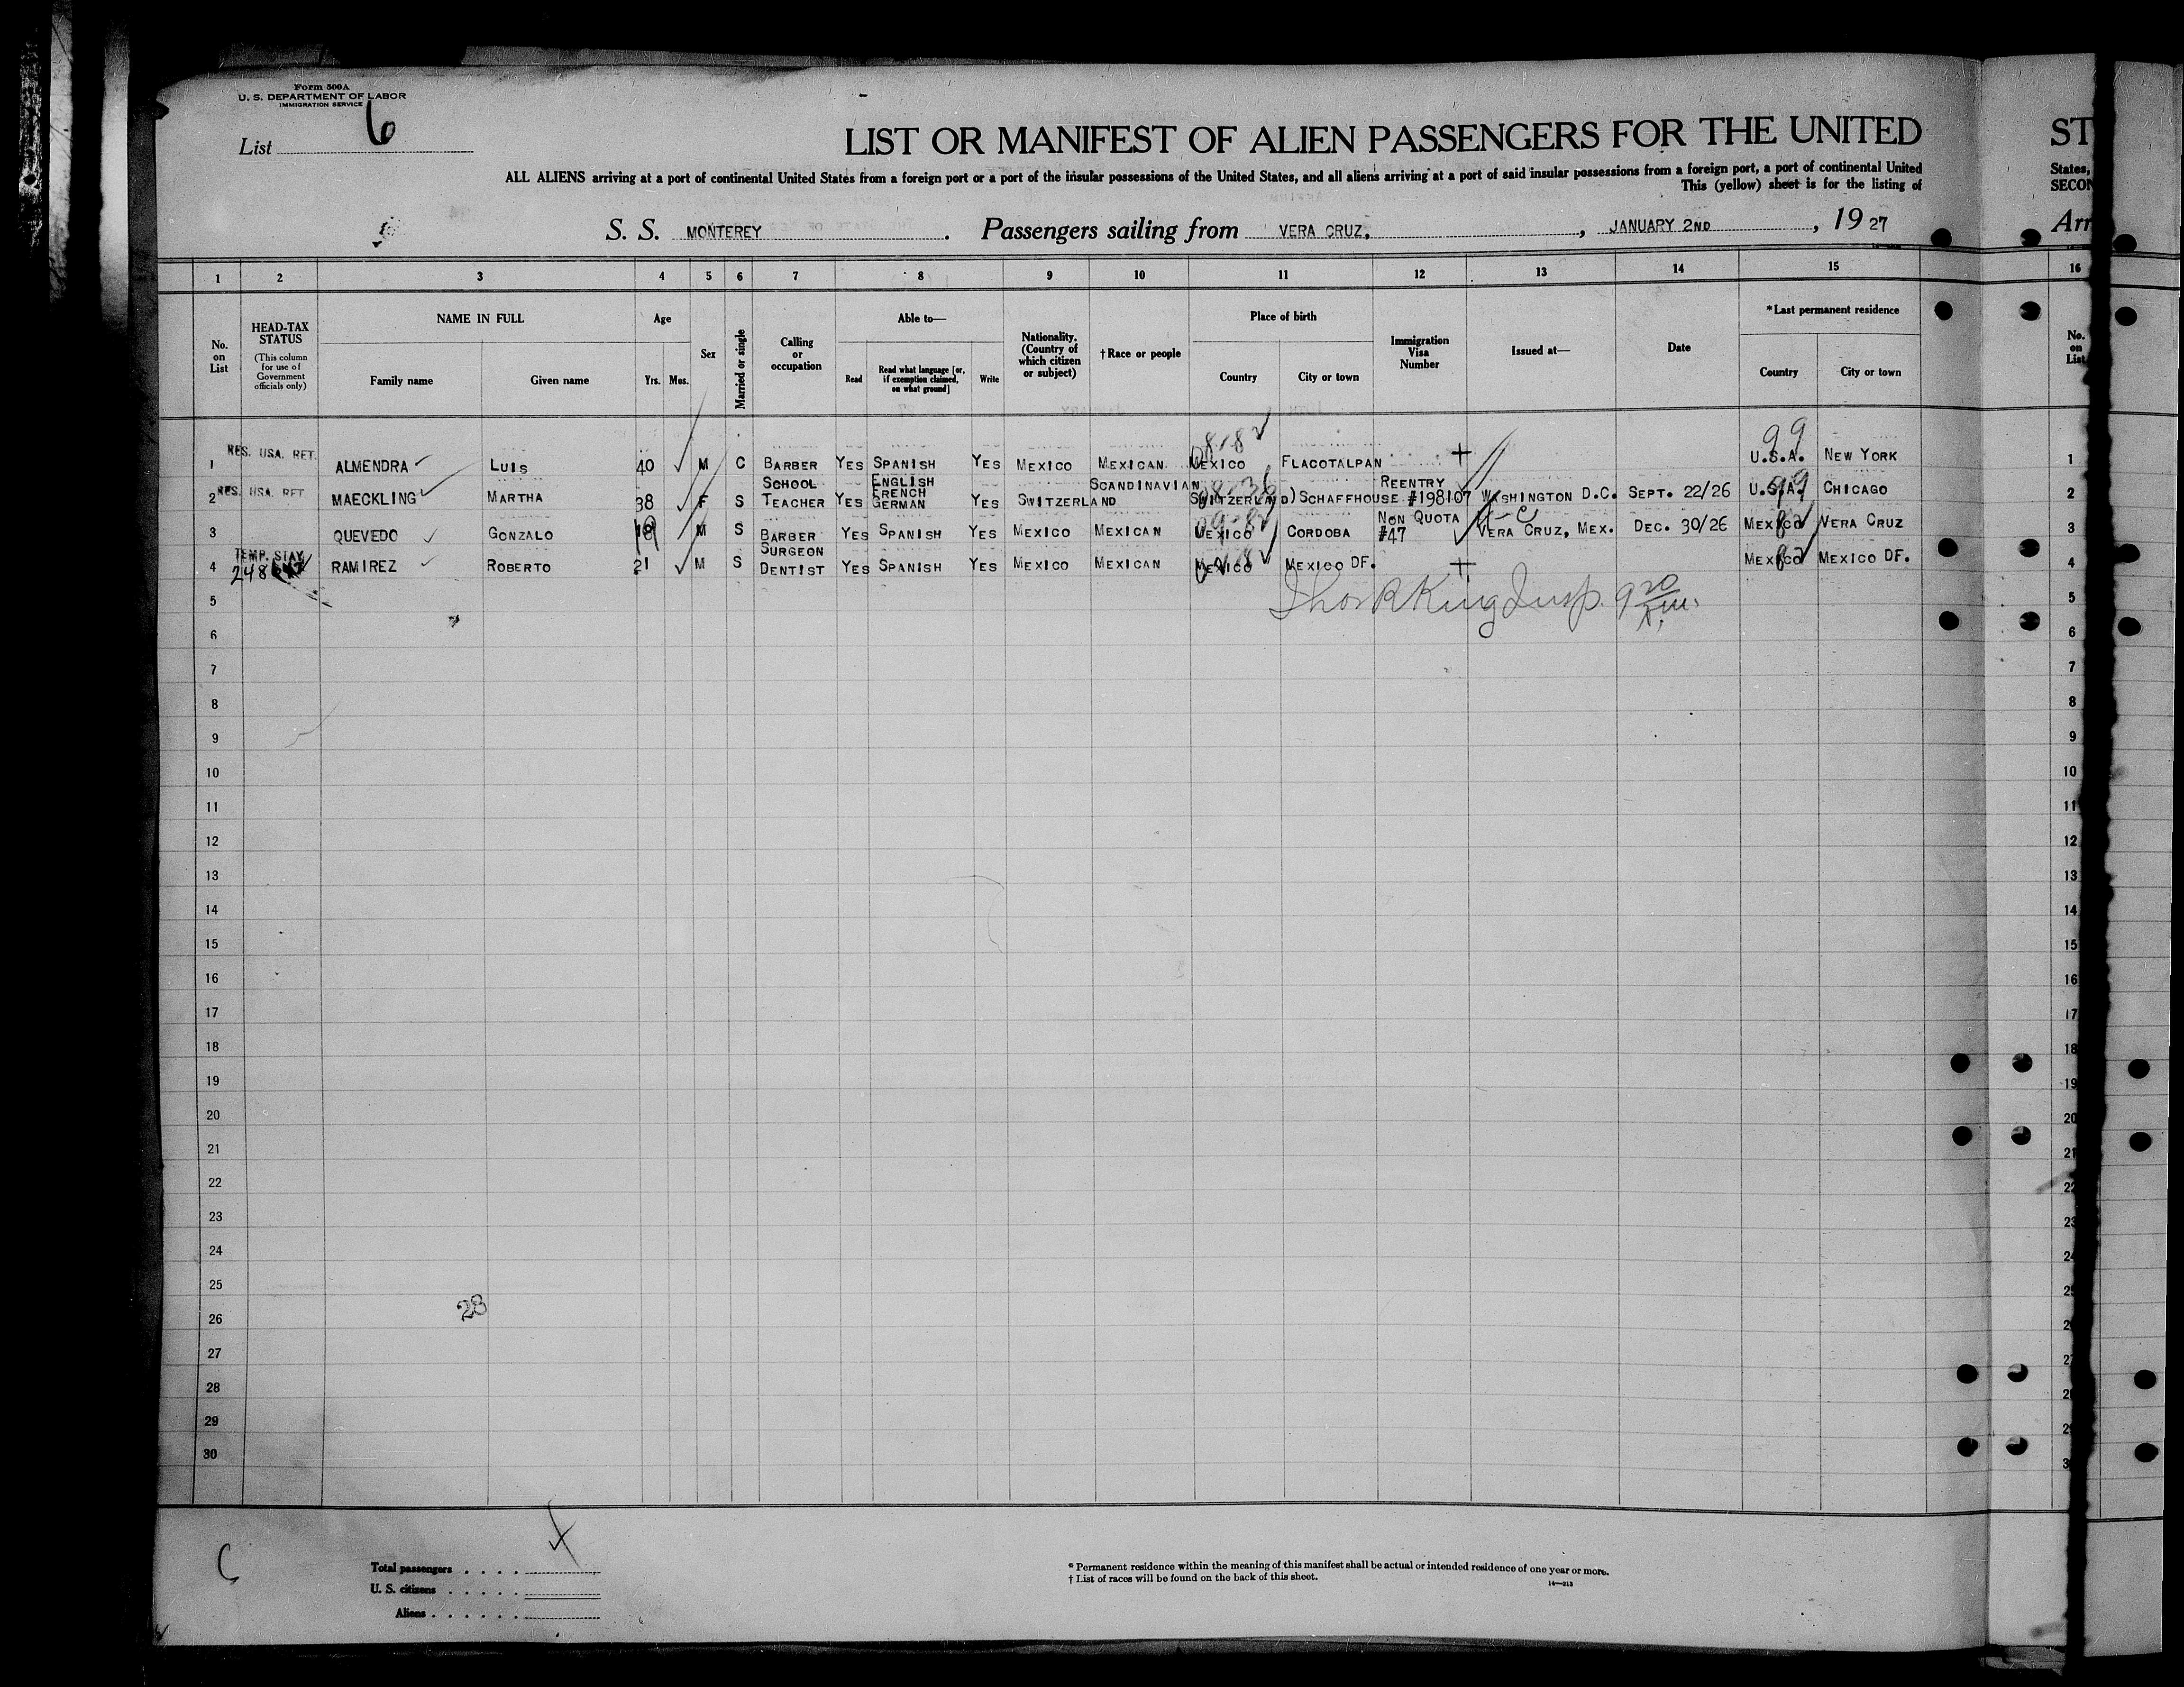 Form 500A
U. S. DEPARTMENT OF LABOR
IMMIGRATION SERVICE
List 6
LIST OR MANIFEST OF ALIEN PASSENGERS FOR THE UNITED
ST
ALL ALIENS arriving at a port of continental United States from a foreign port or a port of the insular possessions of the United States, and all aliens arriving at a port of said insular possessions from a foreign port, a port of continental United
States,
This (yellow) sheet is for the listing of
SECON
S. S. MONTEREY . Passengers sailing from VERA CRUZ. , JANUARY 2ND , 19 27
Arr
1 2 3 4 5 6 7 8 9 10 11 12 13 14 15 16
No. on List
HEAD-TAX STATUS
(This column for use of Government officials only)
NAME IN FULL
Family name Given name
Age
Yrs. Mos.
Sex
Married or single
Calling or occupation
Able to—
Read
Read what language [or, if exemption claimed, on what ground]
Write
Nationality. (Country of which citizen or subject)
†Race or people
Place of birth
Country City or town
Immigration Visa Number
Issued at—
Date
*Last permanent residence
Country City or town
No. on List
1 RES. USA. RET. ALMENDRA LUIS 40 M C BARBER YES SPANISH YES MEXICO MEXICAN MEXICO FLACOTALPAN U.S.A. NEW YORK 1
99
2 RES. USA. RET MAECKLING MARTHA 38 F S SCHOOL TEACHER YES ENGLISH FRENCH GERMAN YES SWITZERLAND SCANDINAVIAN SWITZERLAND) SCHAFFHOUSE REENTRY #198107 WASHINGTON D.C. SEPT. 22/26 U.S.A. CHICAGO 2
3 QUEVEDO GONZALO 19 M S BARBER YES SPANISH YES MEXICO MEXICAN MEXICO CORDOBA NON QUOTA #47 VERA CRUZ, MEX. DEC. 30/26 MEXICO VERA CRUZ 3
4 TEMP. STAY RAMIREZ ROBERTO 21 M S SURGEON DENTIST YES SPANISH YES MEXICO MEXICAN MEXICO MEXICO DF. MEXICO MEXICO DF. 4
5 5
6 6
7 7
8 8
9 9
10 10
11 11
12 12
13 13
14 14
15 15
16 16
17 17
18 18
19 19
20 20
21 21
22 22
23 23
24 24
25
26
27
28
29
30
28
Total passengers
U. S. citizens
Aliens
* Permanent residence within the meaning of this manifest shall be actual or intended residence of one year or more.
† List of races will be found on the back of this sheet.
14—213